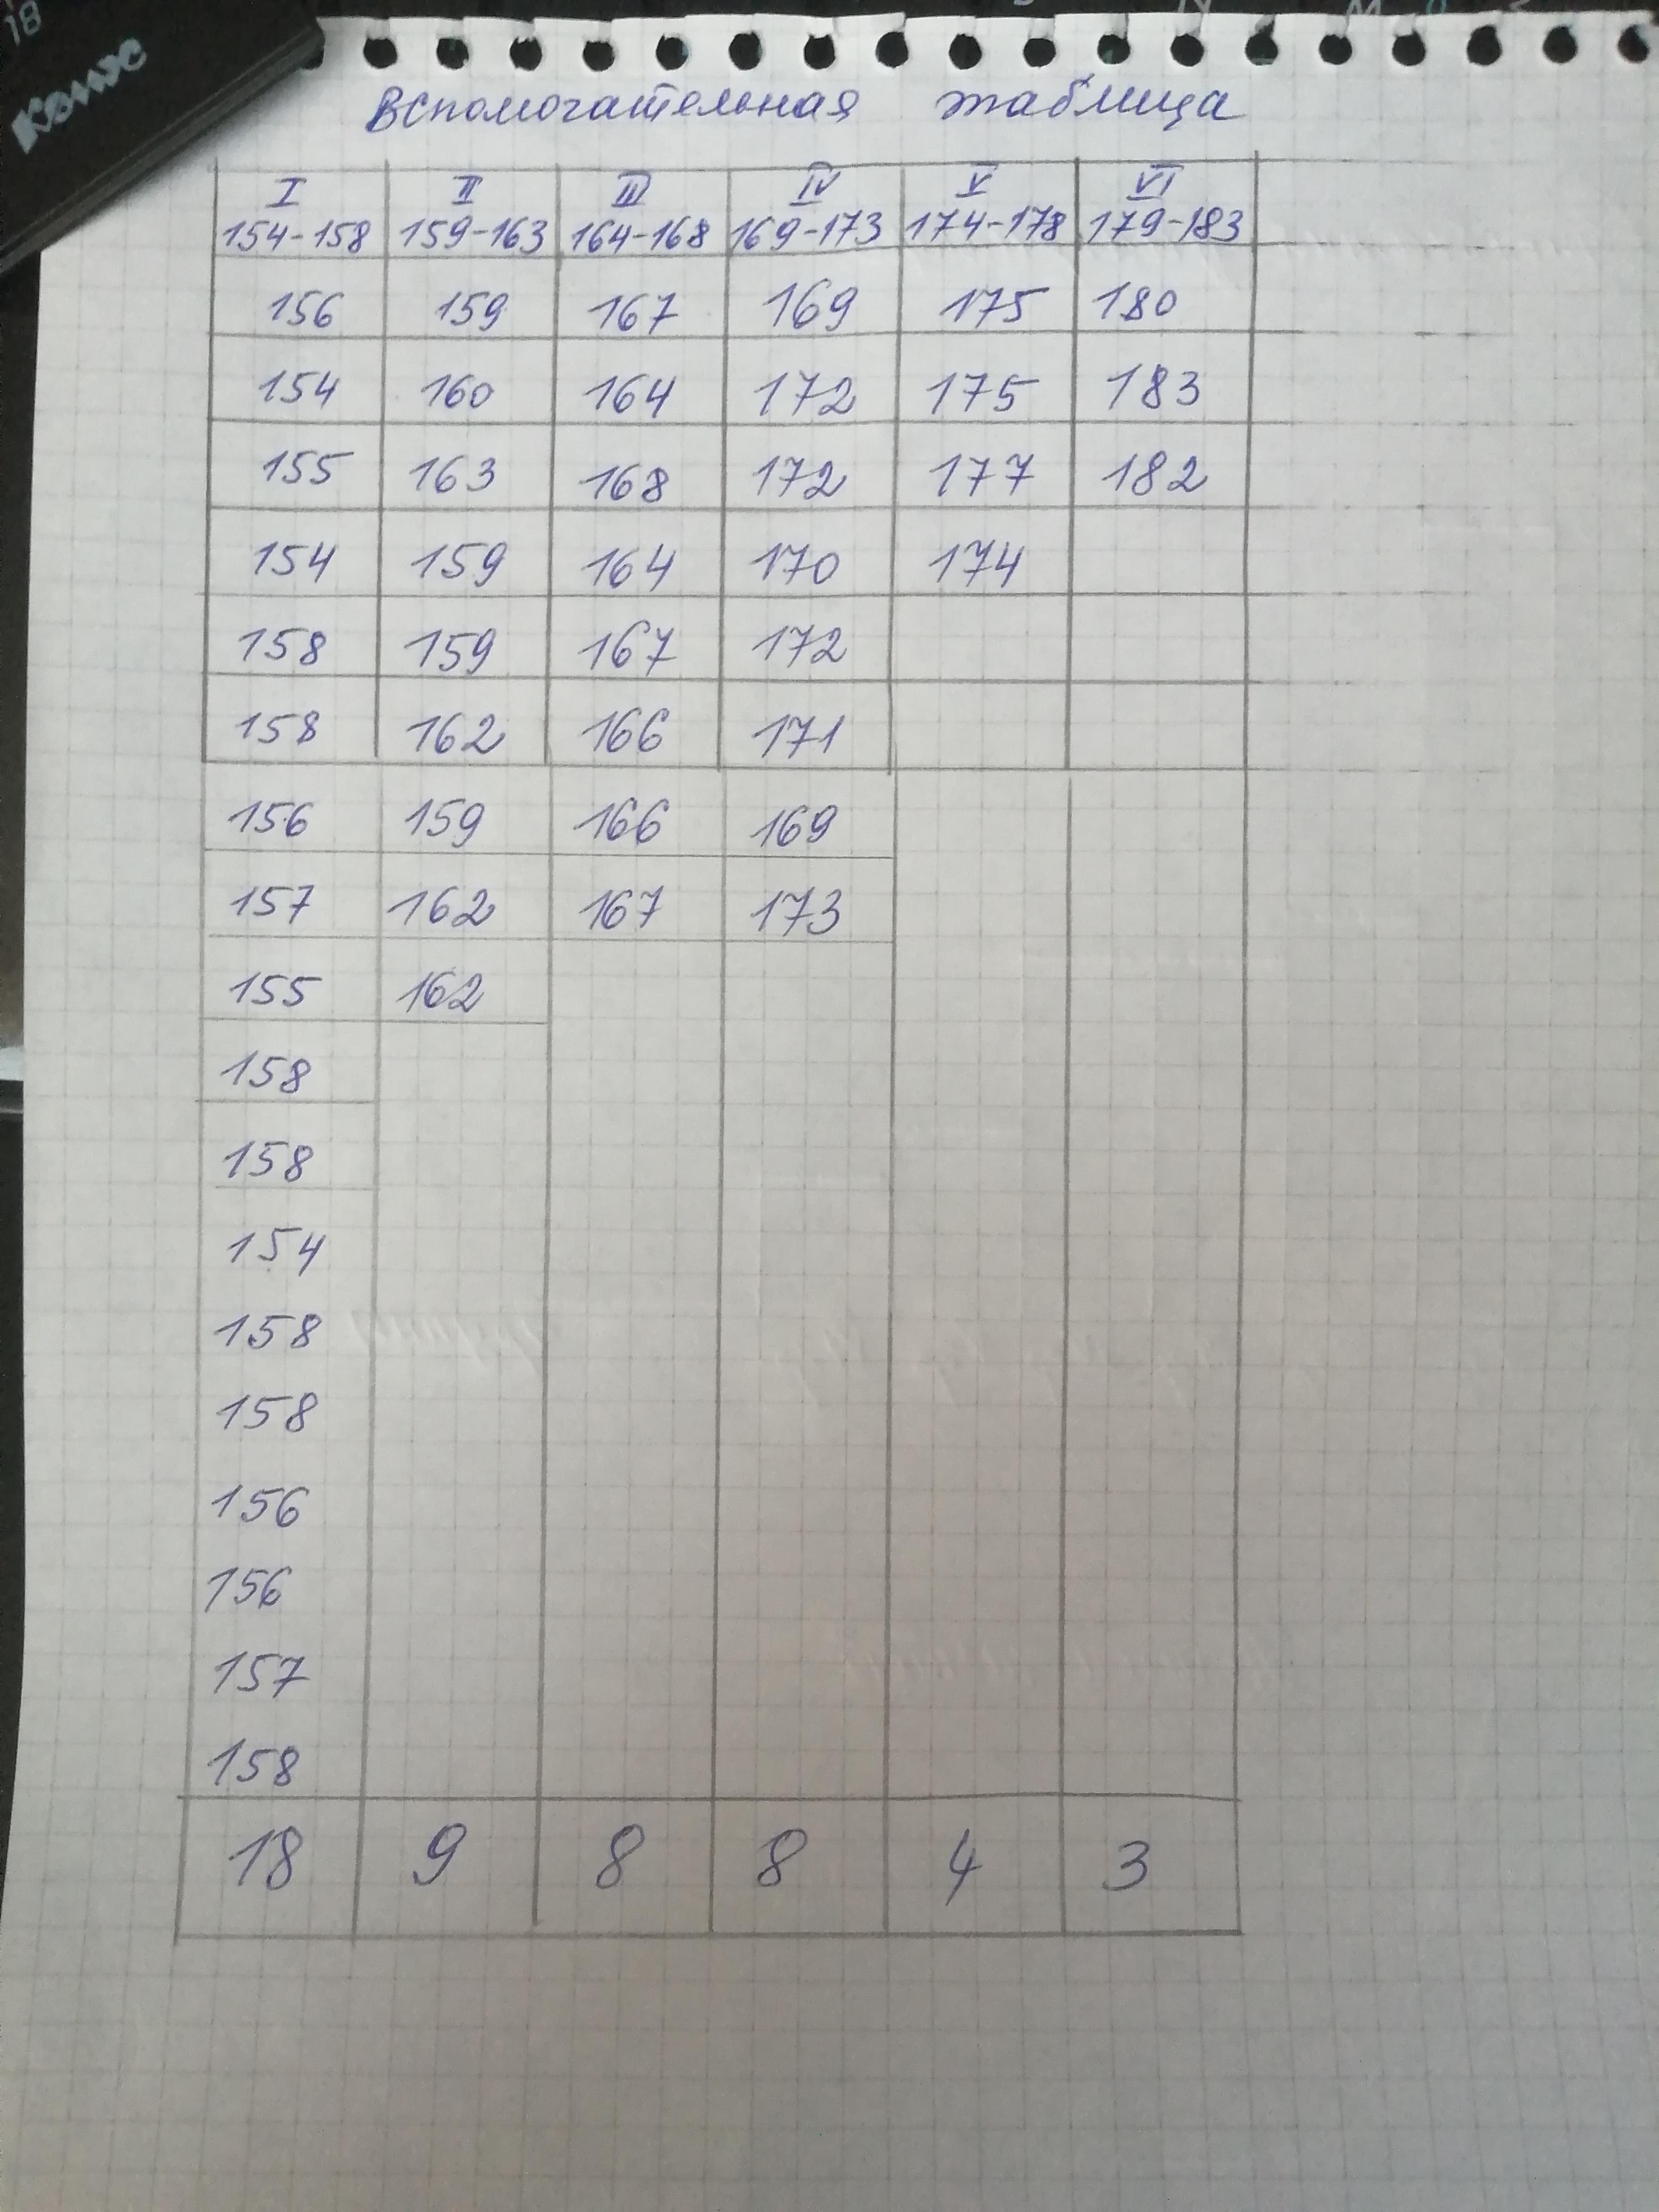 18
Комус
Вспомогательная таблица
I II III IV V VI
154-158 159-163 164-168 169-173 174-178 179-183
156 159 167 169 175 180
154 160 164 172 175 183
155 163 168 172 177 182
154 159 164 170 174
158 159 167 172
158 162 166 171
156 159 166 169
157 162 167 173
155 162
158
158
154
158
158
156
156
157
158
18 9 8 8 4 3